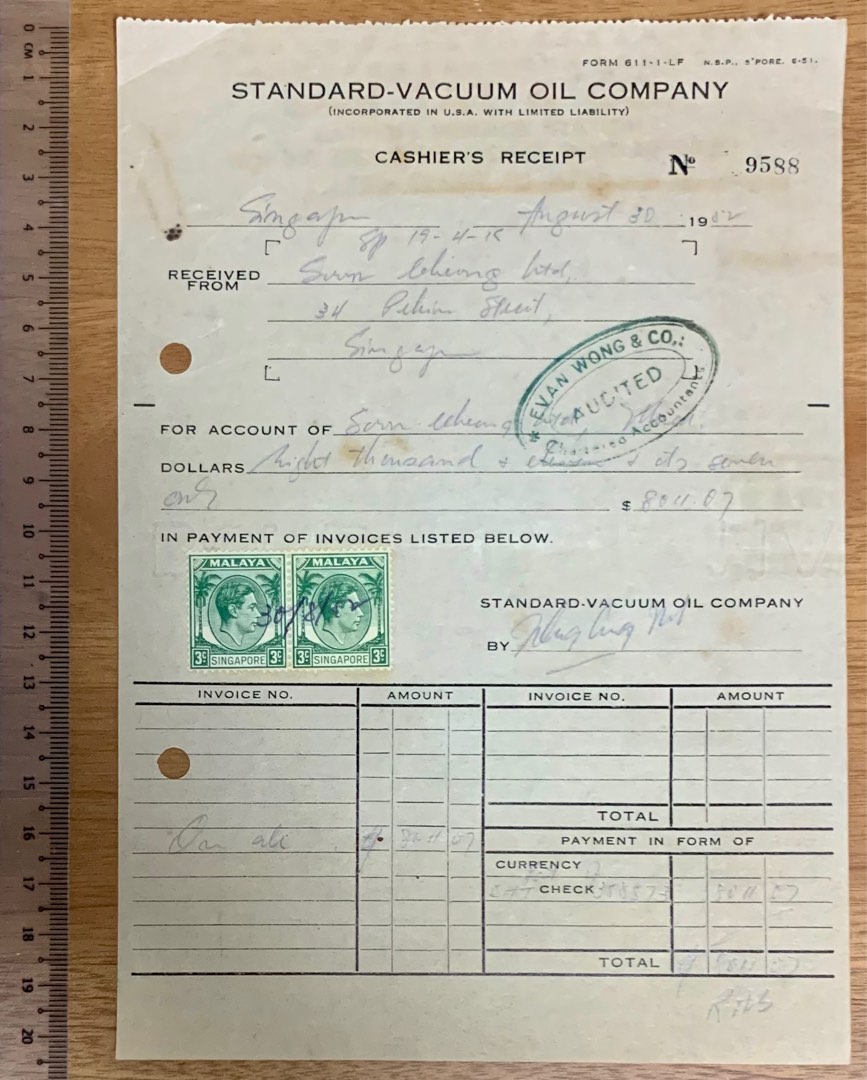 FORM 611-1-LF N.S.P., S'PORE. 6-51.
STANDARD-VACUUM OIL COMPANY
(INCORPORATED IN U.S.A. WITH LIMITED LIABILITY)
CASHIER'S RECEIPT
No 9588
Singapore August 30 1952
RECEIVED FROM
Soon Cheong Ltd,
34 Pekin Street,
Singapore
* EVAN WONG & CO., :
AUDITED
Chartered Accountants
FOR ACCOUNT OF Soon Cheong Ltd,
DOLLARS Eight thousand & eleven & cts seven
only $ 8011.07
IN PAYMENT OF INVOICES LISTED BELOW.
MALAYA MALAYA
30/8/52
3c SINGAPORE 3c 3c SINGAPORE 3c
STANDARD-VACUUM OIL COMPANY
BY
INVOICE NO. AMOUNT INVOICE NO. AMOUNT
TOTAL
On a/c $ 8011 07
PAYMENT IN FORM OF
CURRENCY
CHECK 8011 07
TOTAL $ 8011 07
0 CM 1 2 3 4 5 6 7 8 9 10 11 12 13 14 15 16 17 18 19 20